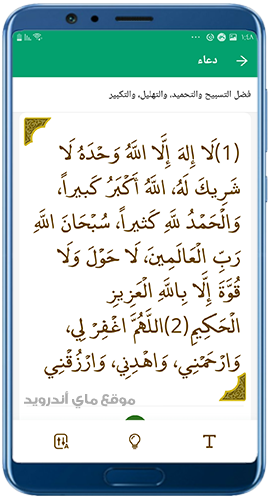 ١:٤٨
دعاء
فضل التسبيح والتحميد، والتهليل، والتكبير
(1)لَا إِلهَ إِلَّا اللَّهُ وَحْدَهُ لَا
شَرِيكَ لَهُ، اللَّهُ أَكْبَرُ كَبيراً،
وَالْحَمْدُ للَّهِ كَثيراً، سُبْحَانَ اللَّهِ
رَبِّ الْعَالَمِينَ، لَا حَوْلَ وَلَا
قُوَّةَ إِلَّا بِاللَّهِ الْعَزِيزِ
الْحَكِيمِ(2)اللَّهُمَّ اغْفِرْ لِي،
وَارْحَمْنِي، وَاهْدِنِي، وَارْزُقْنِي
موقع ماي أندرويد
T